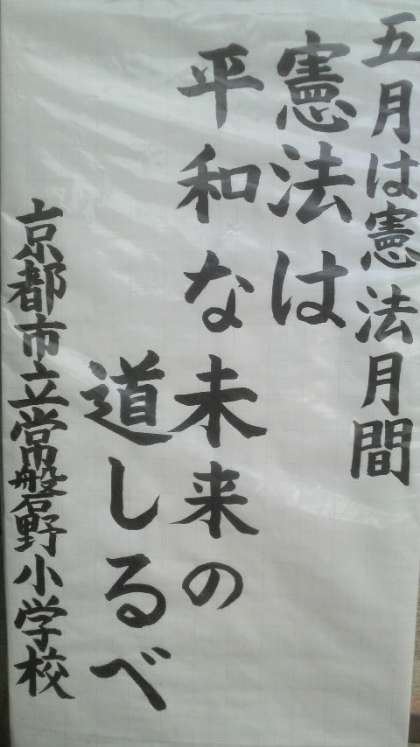 五月は憲法月間
憲法は
平和な未来の
道しるべ
京都市立常磐野小学校